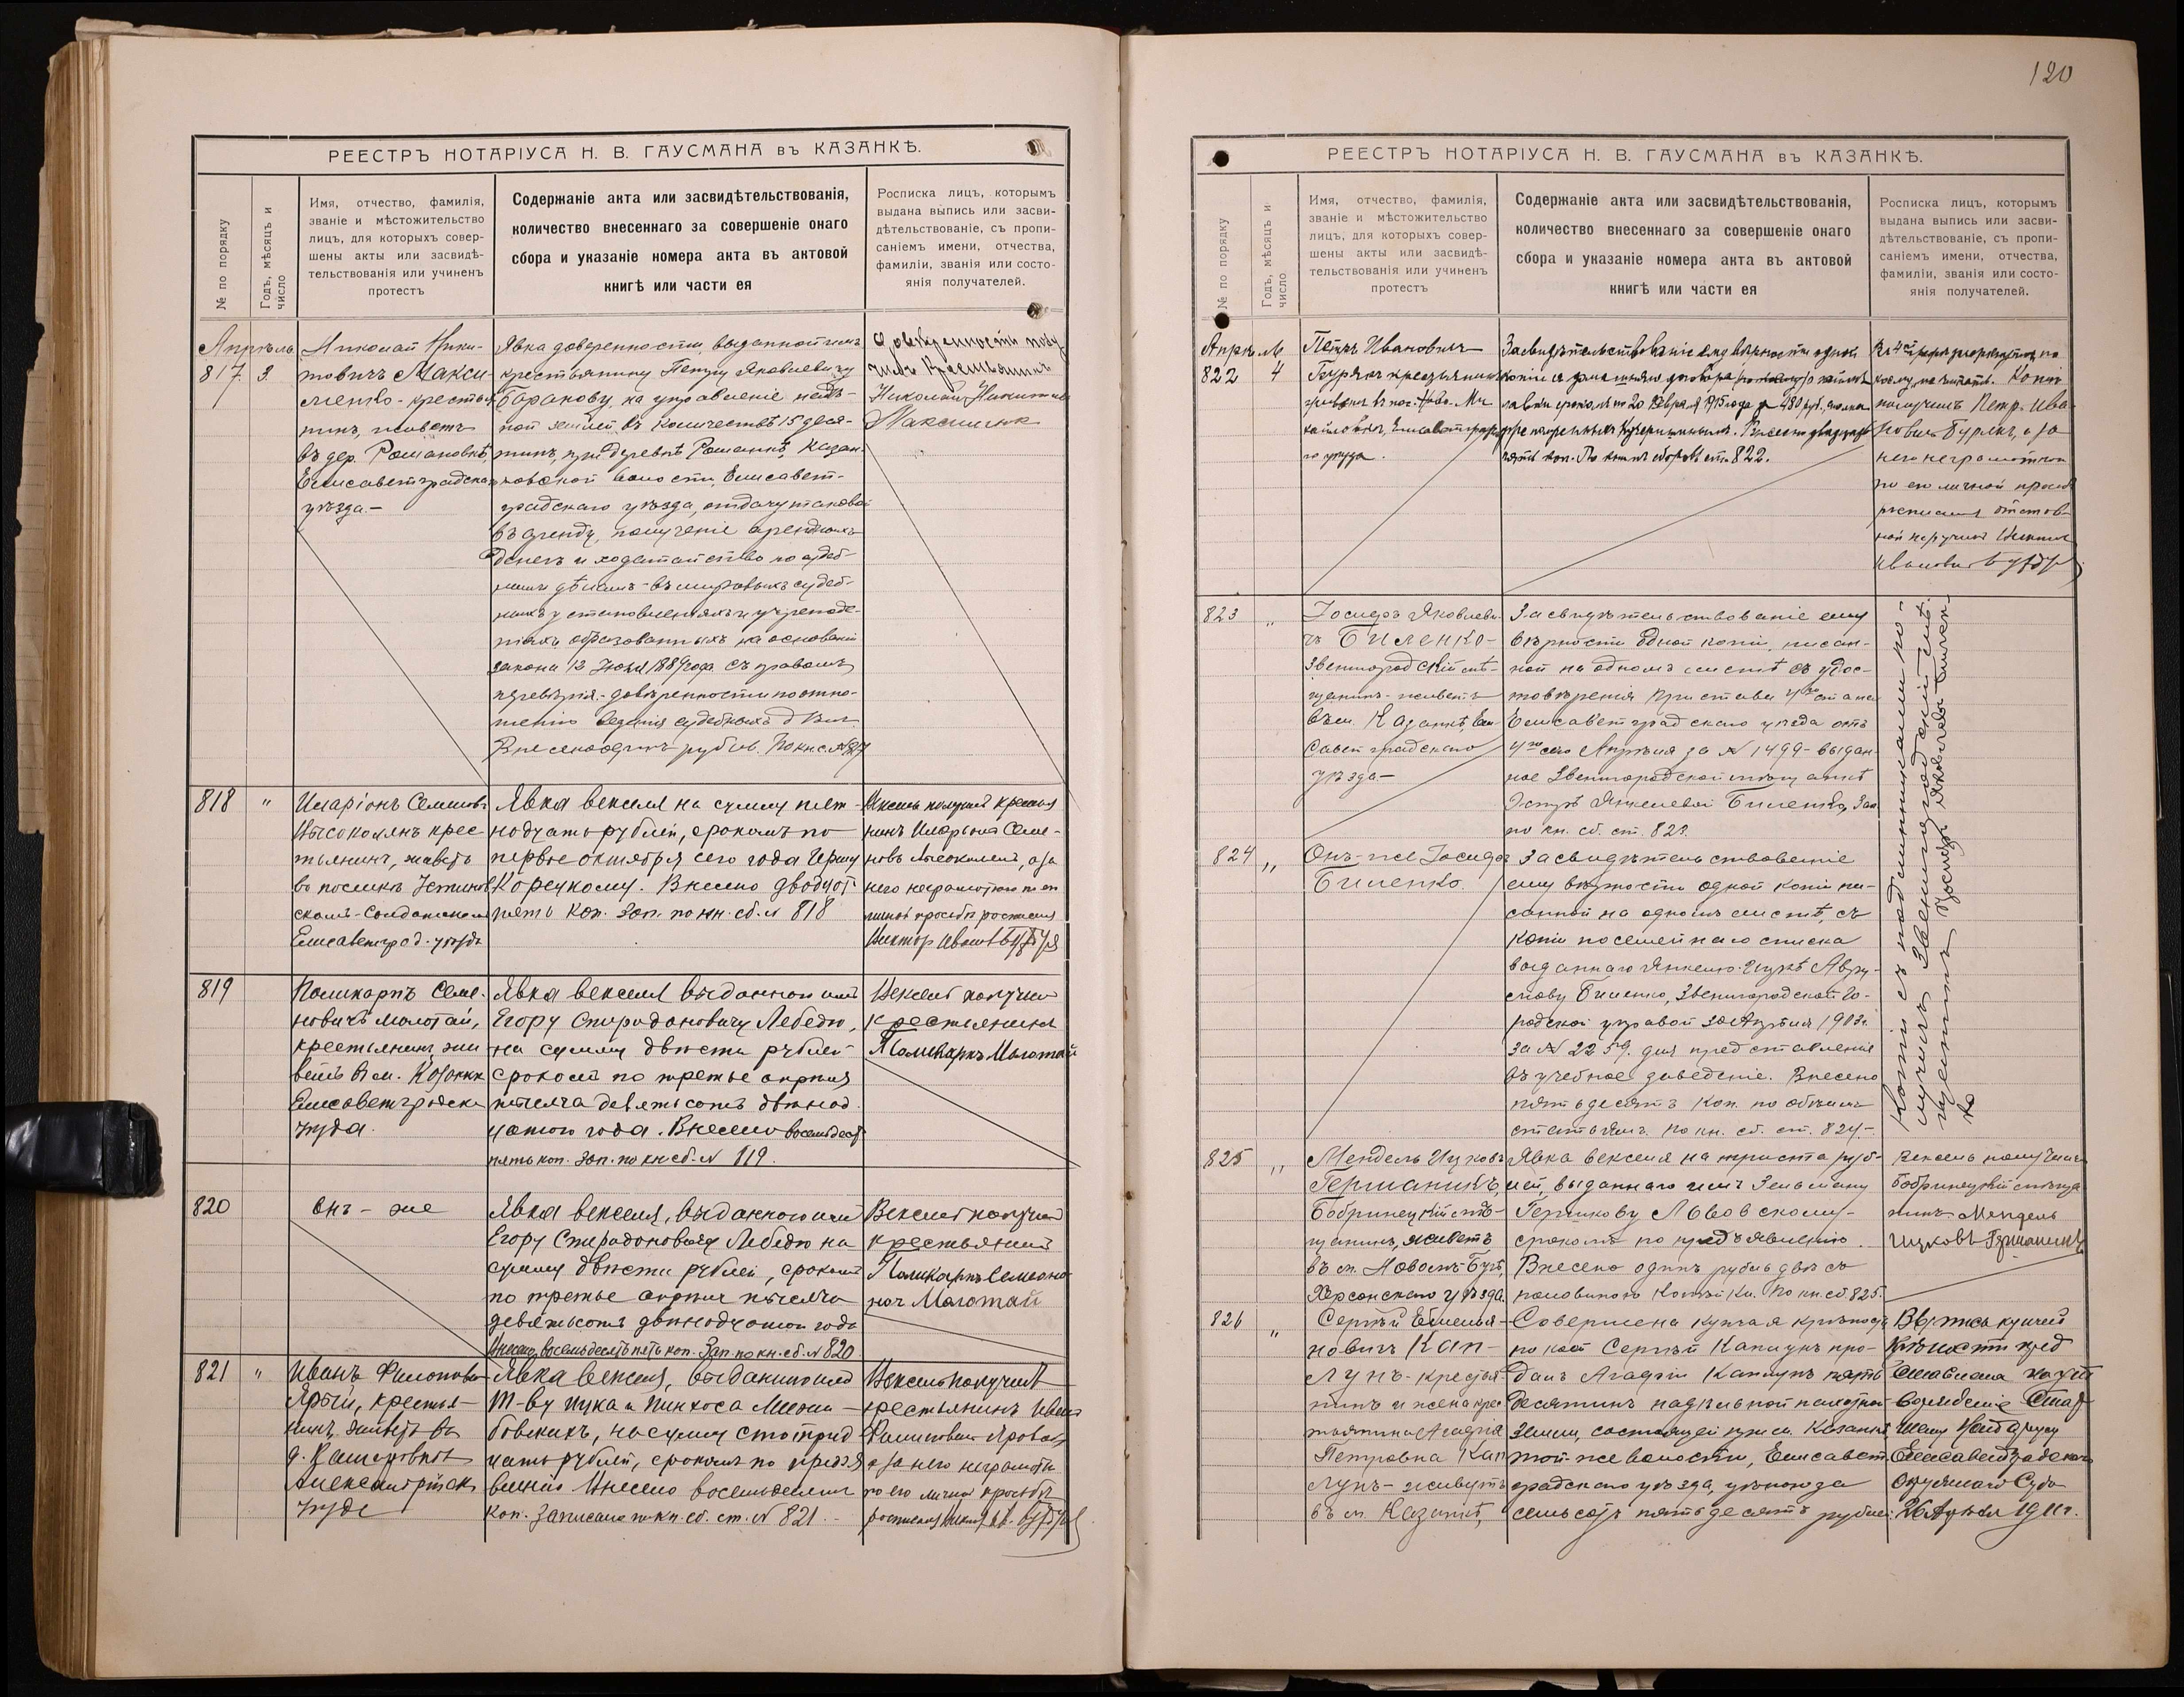 120
РЕЕСТРЪ НОТАРІУСА Н. В. ГАУСМАНА въ КАЗАНКѢ.
№ по порядку
Годъ, мѣсяцъ и
число
Имя, отчество, фамилія,
званіе и мѣстожительство
лицъ, для которыхъ совер-
шены акты или засвидѣ-
тельствованія или учиненъ
протестъ
Содержаніе акта или засвидѣтельствованія,
количество внесеннаго за совершеніе онаго
сбора и указаніе номера акта въ актовой
книгѣ или части ея
Росписка лицъ, которымъ
выдана выпись или засви-
дѣтельствованіе, съ пропи-
саніемъ имени, отчества,
фамиліи, званія или состо-
янія получателей.
Апрѣль
817. 3.
Николай Ники-
товичъ Макси-
менко - крестья
нинъ, живетъ
въ дер. Романовкѣ,
Елисаветградскаго
уѣзда. -
Явка довѣренности, выданной имъ
крестьянину Петру Яковлевичу
Баранову, на управленіе
землей въ количествѣ 15 деся-
тинъ, при деревнѣ Романкѣ Казан-
ковской волости, Елисавет-
градскаго уѣзда, отдачу таковой
въ аренду, полученіе арендныхъ
денегъ и ходатайство по судеб-
нымъ дѣламъ - въ мировыхъ судеб-
ныхъ установленіяхъ и учрежде-
ніяхъ, образованныхъ на основаніи
закона 12 Іюля 1889 года съ правомъ
передовѣрія - довѣренности по отно-
шенію веденія судебныхъ дѣлъ
Внесено одинъ рубль. По кн. с. № 817
Довѣренность полу
чилъ Крестьянинъ
Николай Никитовичъ
Максименко
818 "
Иларіонъ Семеновъ
Высоколянъ крес
тьянинъ, живетъ
въ поселкѣ
Елисаветград. уѣзда
Явка векселя на сумму пят-
надцать рублей, срокомъ по
первое октября сего года
Корецкому. Внесено двадцать
пять коп. Зап. по кн. сб. № 818
Вексель получилъ крестья
нинъ Иларіонъ Семе-
новъ Высоколянъ, а за
него неграмотнаго по его
личной просьбѣ росписался
Викторъ Ивановъ
819
Поликарпъ Семе-
новичъ Молотай,
крестьянинъ, жи
ветъ въ м. Казанкѣ
Елисаветградска
уѣзда.
Явка векселя выданнаго имъ
Егору Спиридоновичу Лебедю,
на сумму двѣсти рублей
срокомъ по третье апрѣля
тысяча девятьсотъ двѣнад
цатаго года. Внесено восемьдесят
пять коп. Зап. по кн. сб. № 819.
Вексель получилъ
крестьянинъ
Поликарпъ Молотай
820
Онъ - же
Явка векселя, выданнаго имъ
Егору Спиридоновичу Лебедю на
сумму двѣсти рублей, срокомъ
по третье апрѣля тысяча
девятьсотъ двѣнадцатаго года
Внесено восемьдесятъ пять коп. Зап. по кн. сб. № 820.
Вексель получилъ
крестьянинъ
Поликарпъ Семено
вич Молотай
821 "
Иванъ Филипович
Ярый, крестья-
нинъ, живетъ въ
д.
Александрійск
уѣзда
Явка векселя, выданнаго имъ
Т-ву Ицка и Пинхоса
на сумму сто трид
цать рублей, срокомъ по предъя
вленію. Внесено восемьдесят
коп. Записано по кн. сб. ст. № 821. -
Вексель получилъ
крестьянинъ Иванъ
Филиповичъ
а за него неграмотн
по его личной просьбѣ
росписался
РЕЕСТРЪ НОТАРІУСА Н. В. ГАУСМАНА въ КАЗАНКѢ.
№ по порядку
Годъ, мѣсяцъ и
число
Имя, отчество, фамилія,
званіе и мѣстожительство
лицъ, для которыхъ совер-
шены акты или засвидѣ-
тельствованія или учиненъ
протестъ
Содержаніе акта или засвидѣтельствованія,
количество внесеннаго за совершеніе онаго
сбора и указаніе номера акта въ актовой
книгѣ или части ея
Росписка лицъ, которымъ
выдана выпись или засви-
дѣтельствованіе, съ пропи-
саніемъ имени, отчества,
фамиліи, званія или состо-
янія получателей.
Апрѣль
822 4
Петръ Ивановичъ
Бурякъ крестьянинъ
живетъ въ пос. Ново-Ми
хайловкѣ, Елисаветград
го уѣзда.
Засвидѣтельствованіе ему вѣрности одной
копіи съ домашняго договора
срокомъ по 20 Февраля 1915 года 480 руб.
Внесено двадцать
пять коп. По книгѣ сборовъ ст. 822.
Копію
получилъ Петр. Ива
новичъ Бурякъ, а за
него неграмотнаго
по его личной просьбѣ
росписался отстав
ной
Ивановичъ
823 "
Іосифъ Яковлеви
чъ Биленко -
Звенигородскій мѣ-
щанинъ - живетъ
въ м. Казанкѣ, Ели
саветградскаго
уѣзда -
Засвидѣтельствованіе ему
вѣрности одной копіи, писан-
ной на одномъ листѣ съ удос-
товѣренія Пристава 4го стана
Елисаветградскаго уѣзда отъ
4го сего Апрѣля за № 1499 - выдан-
ное Звенигородской мѣщанкѣ
Эстерѣ Янкелевой Биленко, Зап.
по кн. сб. ст. 823.
Копіи съ подлинниками по-
лучилъ Звенигородскій мѣ-
щанинъ Іосифъ Яковлевъ Билен-
ко
824 "
Онъ-же Іосифъ
Биленко.
Засвидѣтельствованіе
ему вѣрности одной копіи пи-
санной на одномъ листѣ, съ
копіи посемейнаго списка
выданнаго Янкелю-Ицкѣ Авру-
мову Биленко, Звенигородской Го-
родской управой 30 Апрѣля 1903 г.
за № 2259. для представленія
въ учебное заведеніе. Внесено
пятьдесятъ коп. по обѣимъ
статьямъ. По кн. сб. ст. 824. -
825 "
Мендель Ицковъ
Германикъ,
Бобринецкій мѣ-
щанинъ, живетъ
въ м. Новомъ-Бугѣ,
Херсонскаго уѣзда.
Явка векселя на триста руб-
лей, выданнаго имъ Зельману
Гершкову Львовскому -
срокомъ по предъявленію.
Внесено одинъ рубль двѣ съ
половиною копѣйки. По кн. сб. 825.
Вексель получилъ
Бобринецкій мѣща
нинъ Мендель
Ицковъ Германикъ
826 "
Сергѣй Емелья-
новичъ Кап-
лунъ - крестья
нинъ и жена крес
тьянина Агафія
Петровна Кап
лунъ - живутъ
въ м. Казанкѣ,
Совершена купчая крѣпость
по коей Сергѣй Каплунъ про-
далъ Агафіи Каплунъ пять
десятинъ надѣльной пахотной
земли, состоящей при м. Казанкѣ
той же волости, Елисавет
градскаго уѣзда, цѣною за
семьсотъ пятьдесятъ рублей.
Выпись купчей
крѣпости пред
ставлена
Стар
шему Нотаріусу
Елисаветградскаго
Окружнаго Суда
26 Апрѣля 1911 г.